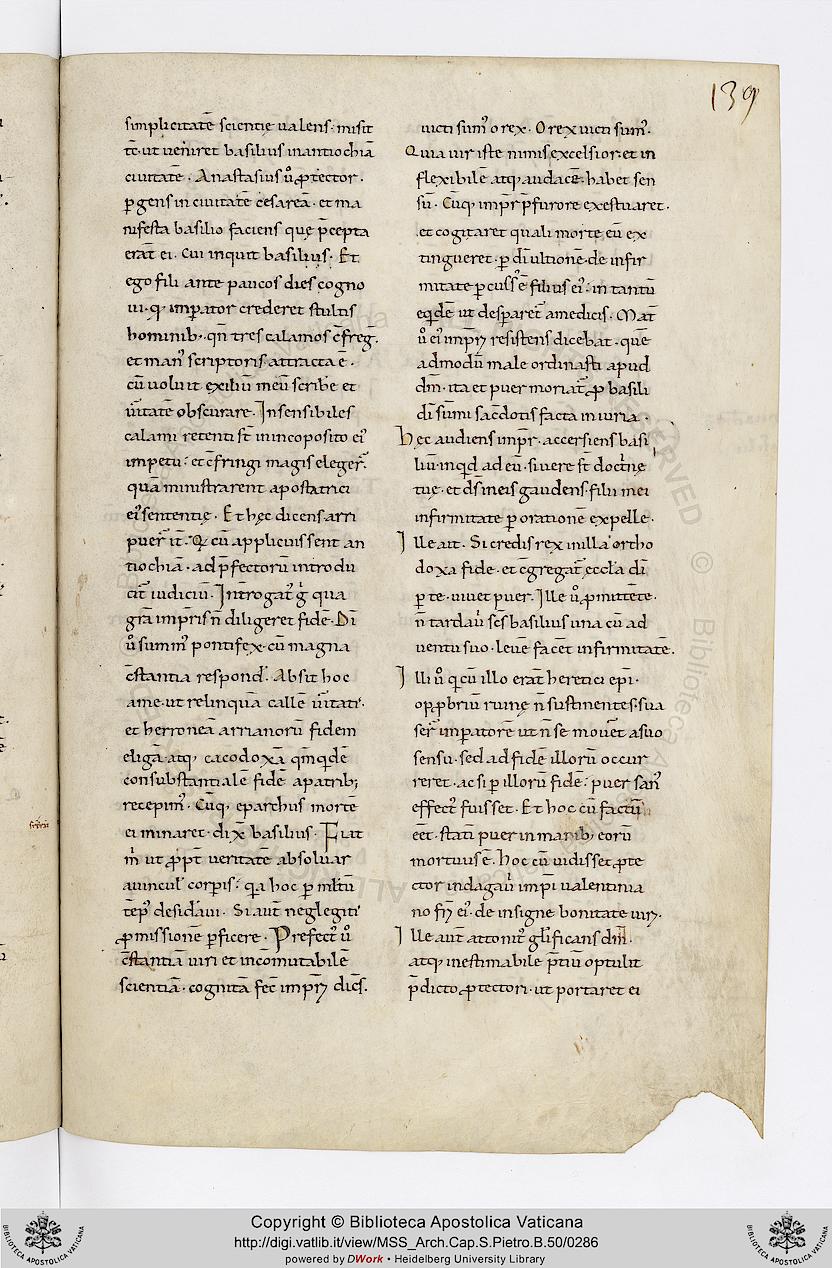 139
simplicitatē scientie ualens· misit
tē·ut ueniret basilius inantiochiā
ciuitatē· Anastasius ů ꝓtector·
ꝑgens in ciuitatē cesareā· et ma
nifesta basilio faciens quę p̄cepta
erat̄ ei· Cui inquit basilius· Et
ego fili ante paucos dies cogno
ui· qꝫ imperator crederet stultis
hominibꝫ· qn̄ tres calamos c̄freg̃·
et manꝰ scriptoris attracta ē·
cū uoluit exiliū meū scribe et
ůitatē obscurare· Insensibiles
calami retenti st̄ inincoposito eiꝰ
impetu· et c̄fringi magis eleger̃·
quā ministrarent apostatrici
eiꝰ sententię· Et hęc dicens arri
puer̃ it̄· Q cū applicuissent an
tiochiā· ad p̄fectorū introdu
cit̃ iudiciū· Introgat̃ g̊ qua
gr̄a impr̄is n̄ diligeret fidē· Di
ů summꝰ pontifex· cū magna
c̄stantia respond̃· Absit hoc
ame· ut relinquā callē ůitati·
et herroneā arrianorū fidem
eligā atqꝫ cacodoxā qm̄qdē
consubstantialē fidē apatribꝫ
recepimꝰ· Cūqꝫ eparchus mortē
ei minaret· dix̄ basilius· Fiat
m̊ ut ꝓpt̄ ueritatē absoluar
auincul̃ corꝑis· qa hoc ꝑ mltū
tēpꝰ desidaui· Si aut̄ neglegitꝰ
ꝓmissionē ꝑficere· Prefectꝰ ů
c̄stantiā uiri et incōmutabilē
scientiā· cognitā fec̄ impr̄ı dic̄s·
uicti sumꝰ o rex· O rex uicti sumꝰ·
Quia uir iste nimis excelsior· et in
flexibilē atqꝫ audacē· habet sen
sū· Cūqꝫ imp̄r p̄ furore exestuaret·
et cogitaret quali morte eū ex
tingueret· ꝑ di ultionē· de infir
mitate ꝑcussꝰ ē filius eiꝰ· in tantū
eqdē ut desparet̃ amedicis· Mat̄
ů eiꝰ impr̄ı resistens dicebat· quē
admodū male ordinasti apud
dm̄· ita et puer moriat̃ ꝓ basili
di summi sac̄dotis facta iniuria·
hęc audiens imp̄r· accersiens basi
liū· inqd ad eū· si uere st̄ doctrinę
tuę· et ds̄ ineis gaudens· filii mei
infirmitatē ꝑ orationē expelle·
Ille ait· Si credis rex inilla ortho
doxa fide· et c̄gregat̃ eccl̄a di
ꝑ te· uiuet puer· Ille ů ꝓmittēte·
n̄ tardau̇ sc̄s basilius una cū ad
uentu suo· leuē facēt infirmitatē·
Illi ů q cū illo erat̄ heretici ep̄i·
opꝓbriū ruinę n̄ sustinentes· sua
ser̃ imperatorē ut n̄ se mouet̃ asuo
sensu· sed ad fidē illorū occur
reret· ac si ꝑ illorū fidē· puer sanꝰ
effectꝰ fuisset· Et hoc cū factū
eēt· statī puer in manibꝫ eorū
mortuus ē· Hoc cū uidisset ꝓte
ctor indagau̇ impi ualentinia
no fr̄ı eiꝰ· de insigne bonitate uirı·
Ille aut̄ attonitꝰ gl̄ificans dm̄
atqꝫ inestimabile p̄tiū optulit
p̄dicto ꝓtectori· ut portaret ei
Copyright © Biblioteca Apostolica Vaticana
http://digi.vatlib.it/view/MSS_Arch.Cap.S.Pietro.B.50/0286
powered by DWork • Heidelberg University Library